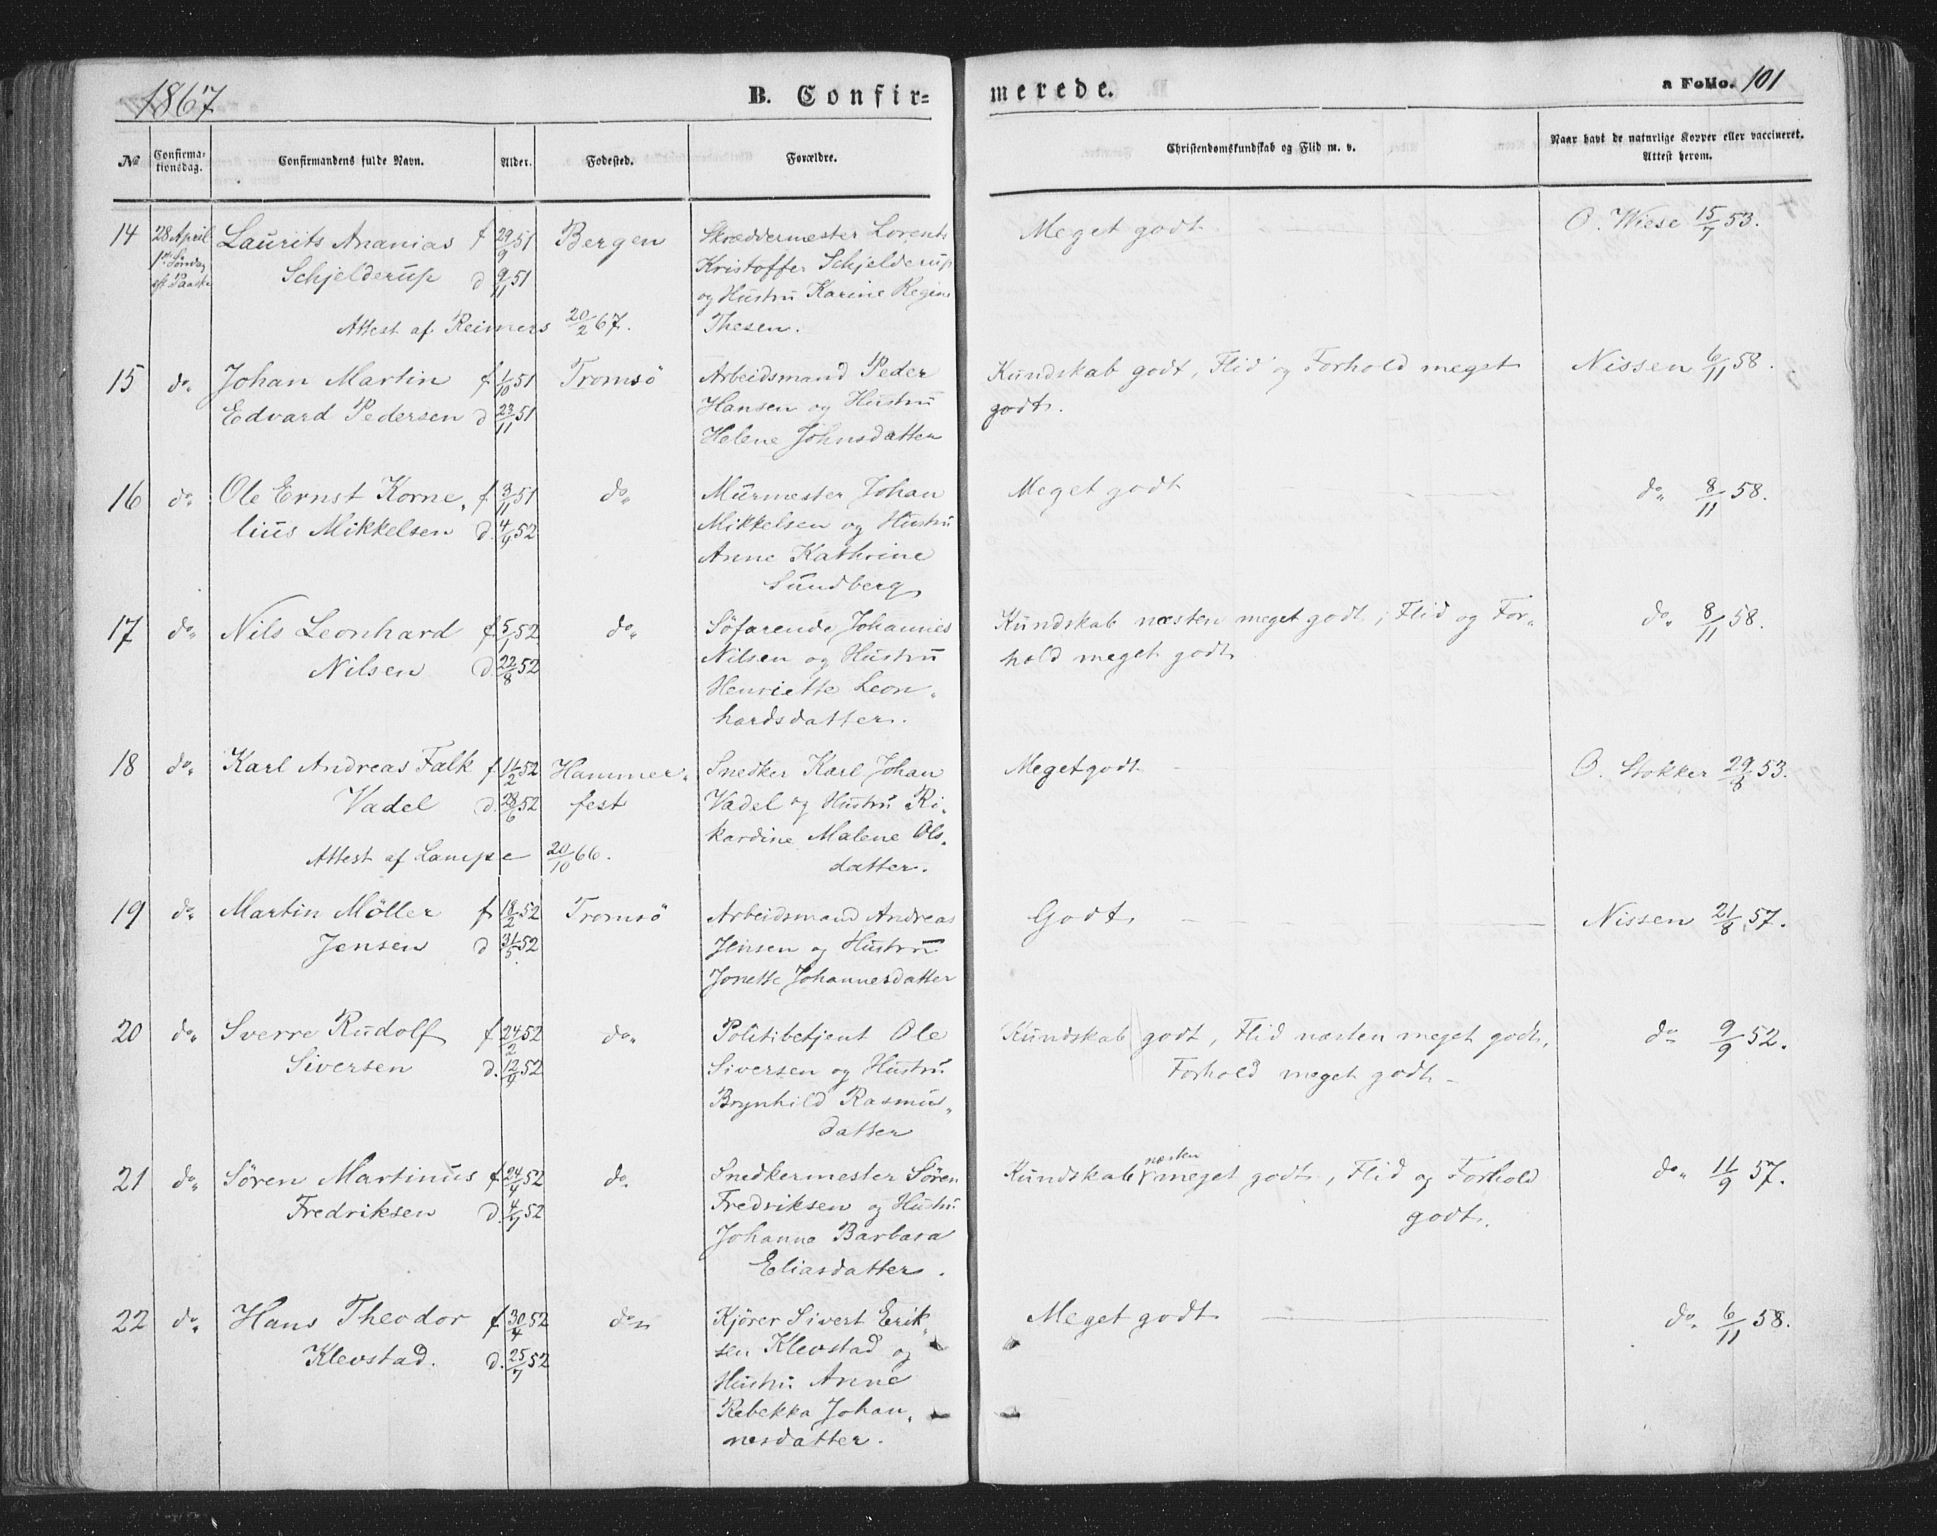 1867
B. Confir=
merede.
a Folio. 101
No
Confirma-
tionsdag.
Confirmandens fulde Navn.
Alder.
Fodested.
Forældre.
Christendomskundskab og Flid m. v.
Naar havt de naturlige Kopper eller vaccineret.
Attest herom.
14 28 April Laurits Ananias f 29/9 51 Bergen Skræddermester Lorents Meget godt O. Wiese 15/7 53.
1ste Søndag Schjelderup d 9/11 51 Kristoffer Schjelderup
eft Paaske og Hustru Karine Regine
Attest af Reimers 20/2 67. Thesen.
15 do Johan Martin f. 1/10 51 Tromsö Arbeidsmand Peder Kundskab godt, Flid og Forhold meget Nissen 6/11 58.
Edvard Pedersen d 23/11 51 Hansen og Hustru godt.
Helene Johnsdatter
16 do Ole Ernst Korne, f 3/11 51 do Murmester Johan Meget godt do 8/11 58.
lius Mikkelsen d. 4/9 52 Mikkelsen og Hustru
Anne Kathrine
Sundberg
17 do Nils Leonhard f. 5/1 52 do Söfarende Johannes Kundskab næsten meget godt; Flid og For- do 8/11 58.
Nilsen d. 22/8 52 Nilsen og Hustru hold meget godt
Henriette Leon-
hardsdatter.
18 do Karl Andreas Falk f 11/2 52 Hammer- Snedker Karl Johan Meget godt O. Stokker 29/8 53.
Vadel d. 28/6 52 fest Vadel og Hustru Ri-
kardine Malene Ols-
Attest af Lampe 20/10 66. datter.
19 do Martin Möller f 18/2 52 Tromsö Arbeidsmand Andreas Godt Nissen 21/8 57.
Jensen d 31/5 52 Jensen og Hustru
Jonette Johannesdatter
20 do Sverre Rudolf f 24/2 52 do Politibetjent Ole Kundskab godt, Flid næsten meget godt, do 9/9 52.
Siversen d. 12/9 52 Siversen og Hustru Forhold meget godt
Brynhild Rasmus-
datter
21 do Sören Martinus f 24/4 52 do. Snedkermester Sören Kundskab næsten meget godt, Flid og Forhold do 11/9 57.
Fredriksen d. 4/7 52 Fredriksen og Hustru godt.
Johanna Barbara
Eliasdatter.
22 do Hans Theodor f 30/4 52 do Kjörer Sivert Erik- Meget godt do 6/11 58.
Klevstad. d. 25/7 52 sen Klevstad og
Hustru Anne
Rebekka Johan-
nesdatter.